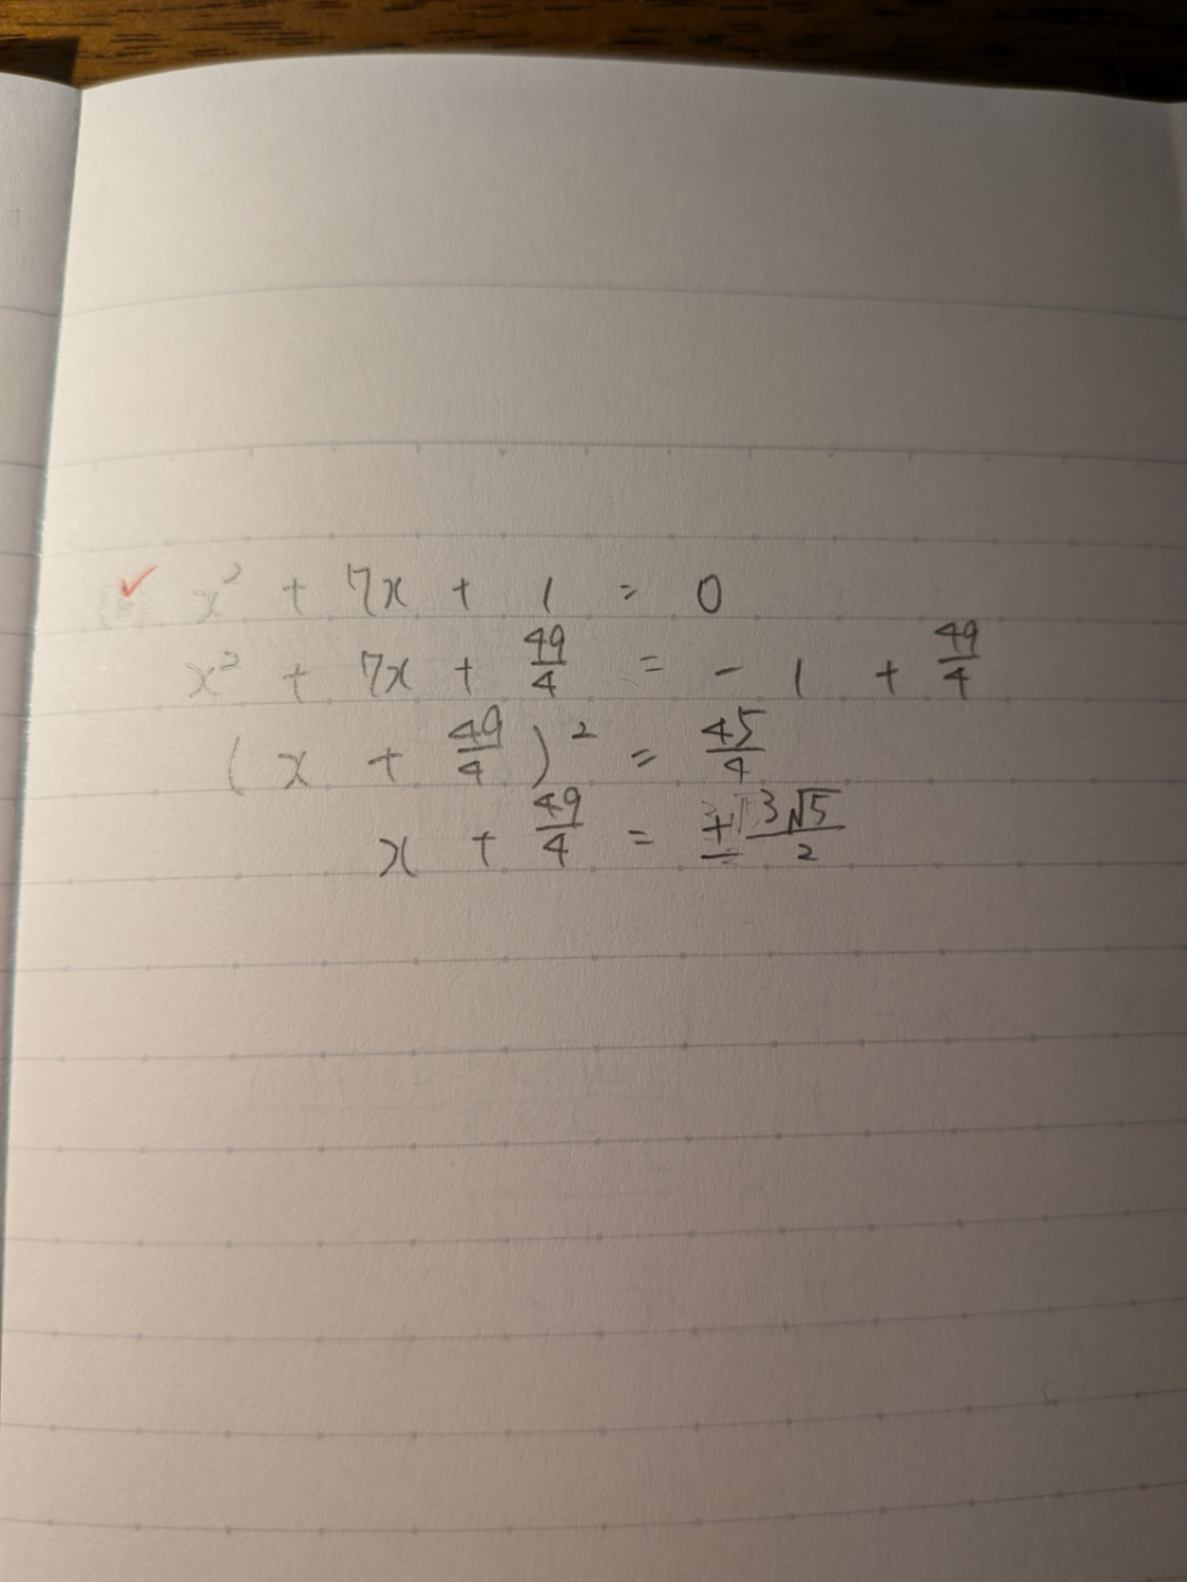 ✓ x² + 7x + 1 = 0
x² + 7x + 49/4 = - 1 + 49/4
(x + 49/4)² = 45/4
x + 49/4 = ± 3√5/2